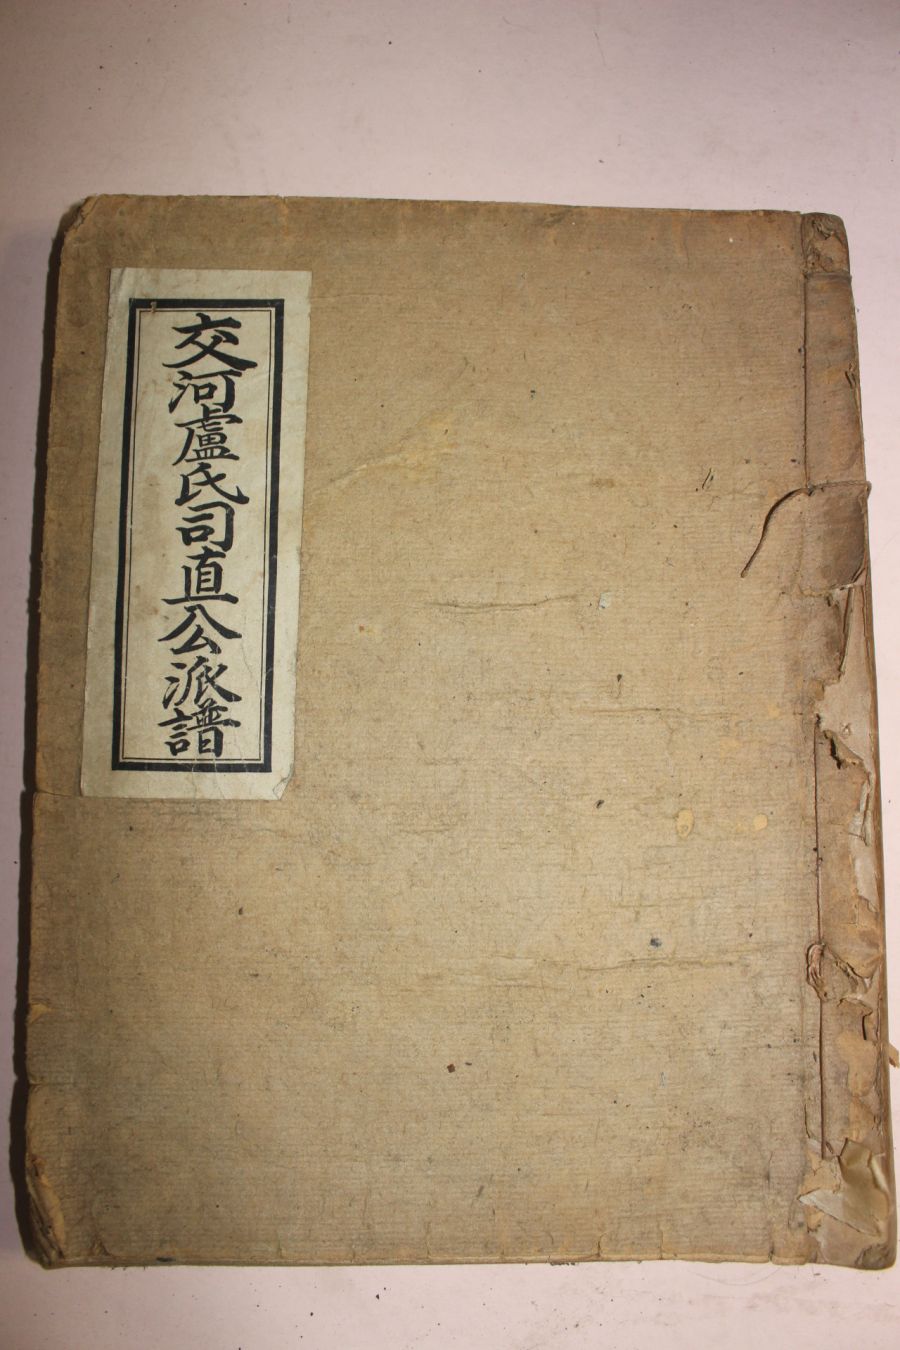 交河盧氏司直公派譜